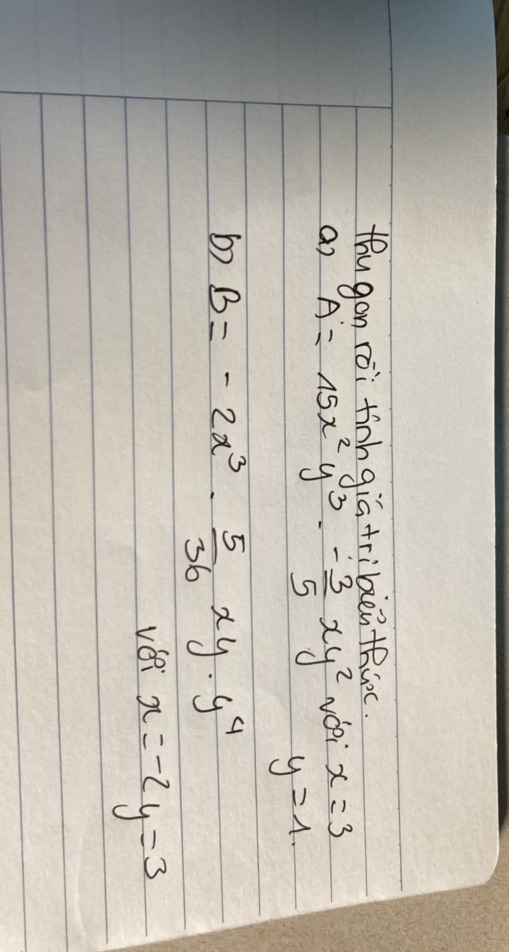 thu gọn rồi tính giá trị biểu thức.
a) A = 15x² y³ . -3/5 xy² với x = 3
y = 1.
b) B = - 2x³ . 5/36 xy . y⁴
với x = -2 y = 3